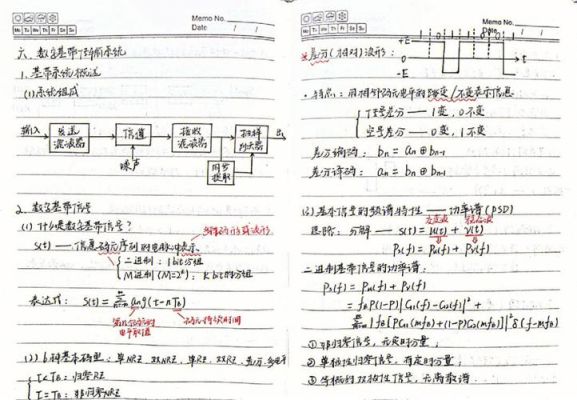 Memo No.
Mo Tu We Th Fr Sa Su
Date / /
六、数字基带传输系统
1. 基带系统概述
(1) 系统组成
输入 发送滤波器 信道 接收滤波器 抽样判决器 出
噪声 同步提取
2. 数字基带信号
(1) 什么是数字基带信号?
S(t) —— 信息码元序列的电脉冲表示
二进制: 1bit分组
M进制 (M=2ᵏ): K bit的分组
表达式: S(t) = Σ aₙ g(t-nTB)
码元持续时间
电平取值
(2) 6种基本码型: 单NRZ, 双NRZ, 单RZ, 双RZ, 差分, 多电平
τ<TB: 归零RZ
τ=TB: 非归零NRZ
Memo No.
Mo Tu We Th Fr Sa Su
Date / /
差分(相对)波形:
+E
0
-E
t
特点: 用相邻码元电平的跳变/不变表示信息
"1"差分 —— 1变, 0不变
"0"差分 —— 0变, 1不变
差分编码: bₙ = aₙ ⊕ bₙ₋₁
差分译码: aₙ = bₙ ⊕ bₙ₋₁
(3) 基本信号的频谱特性 —— 功率谱(PSD)
交变波 稳态波
思路: 分解 —— S(t) = u(t) + v(t)
Ps(f) = Pu(f) + Pv(f)
二进制基带信号的功率谱:
Ps(f) = Pu(f) + Pv(f)
= fB P(1-P)|G₁(f) - G₂(f)|² +
Σ |fB[PG₁(mfB) + (1-P)G₂(mfB)]|² δ(f-mfB)
① 非归零信号, 无定时分量;
② 单极性归零信号, 有定时分量;
③ 等概的双极性信号, 无离散谱.